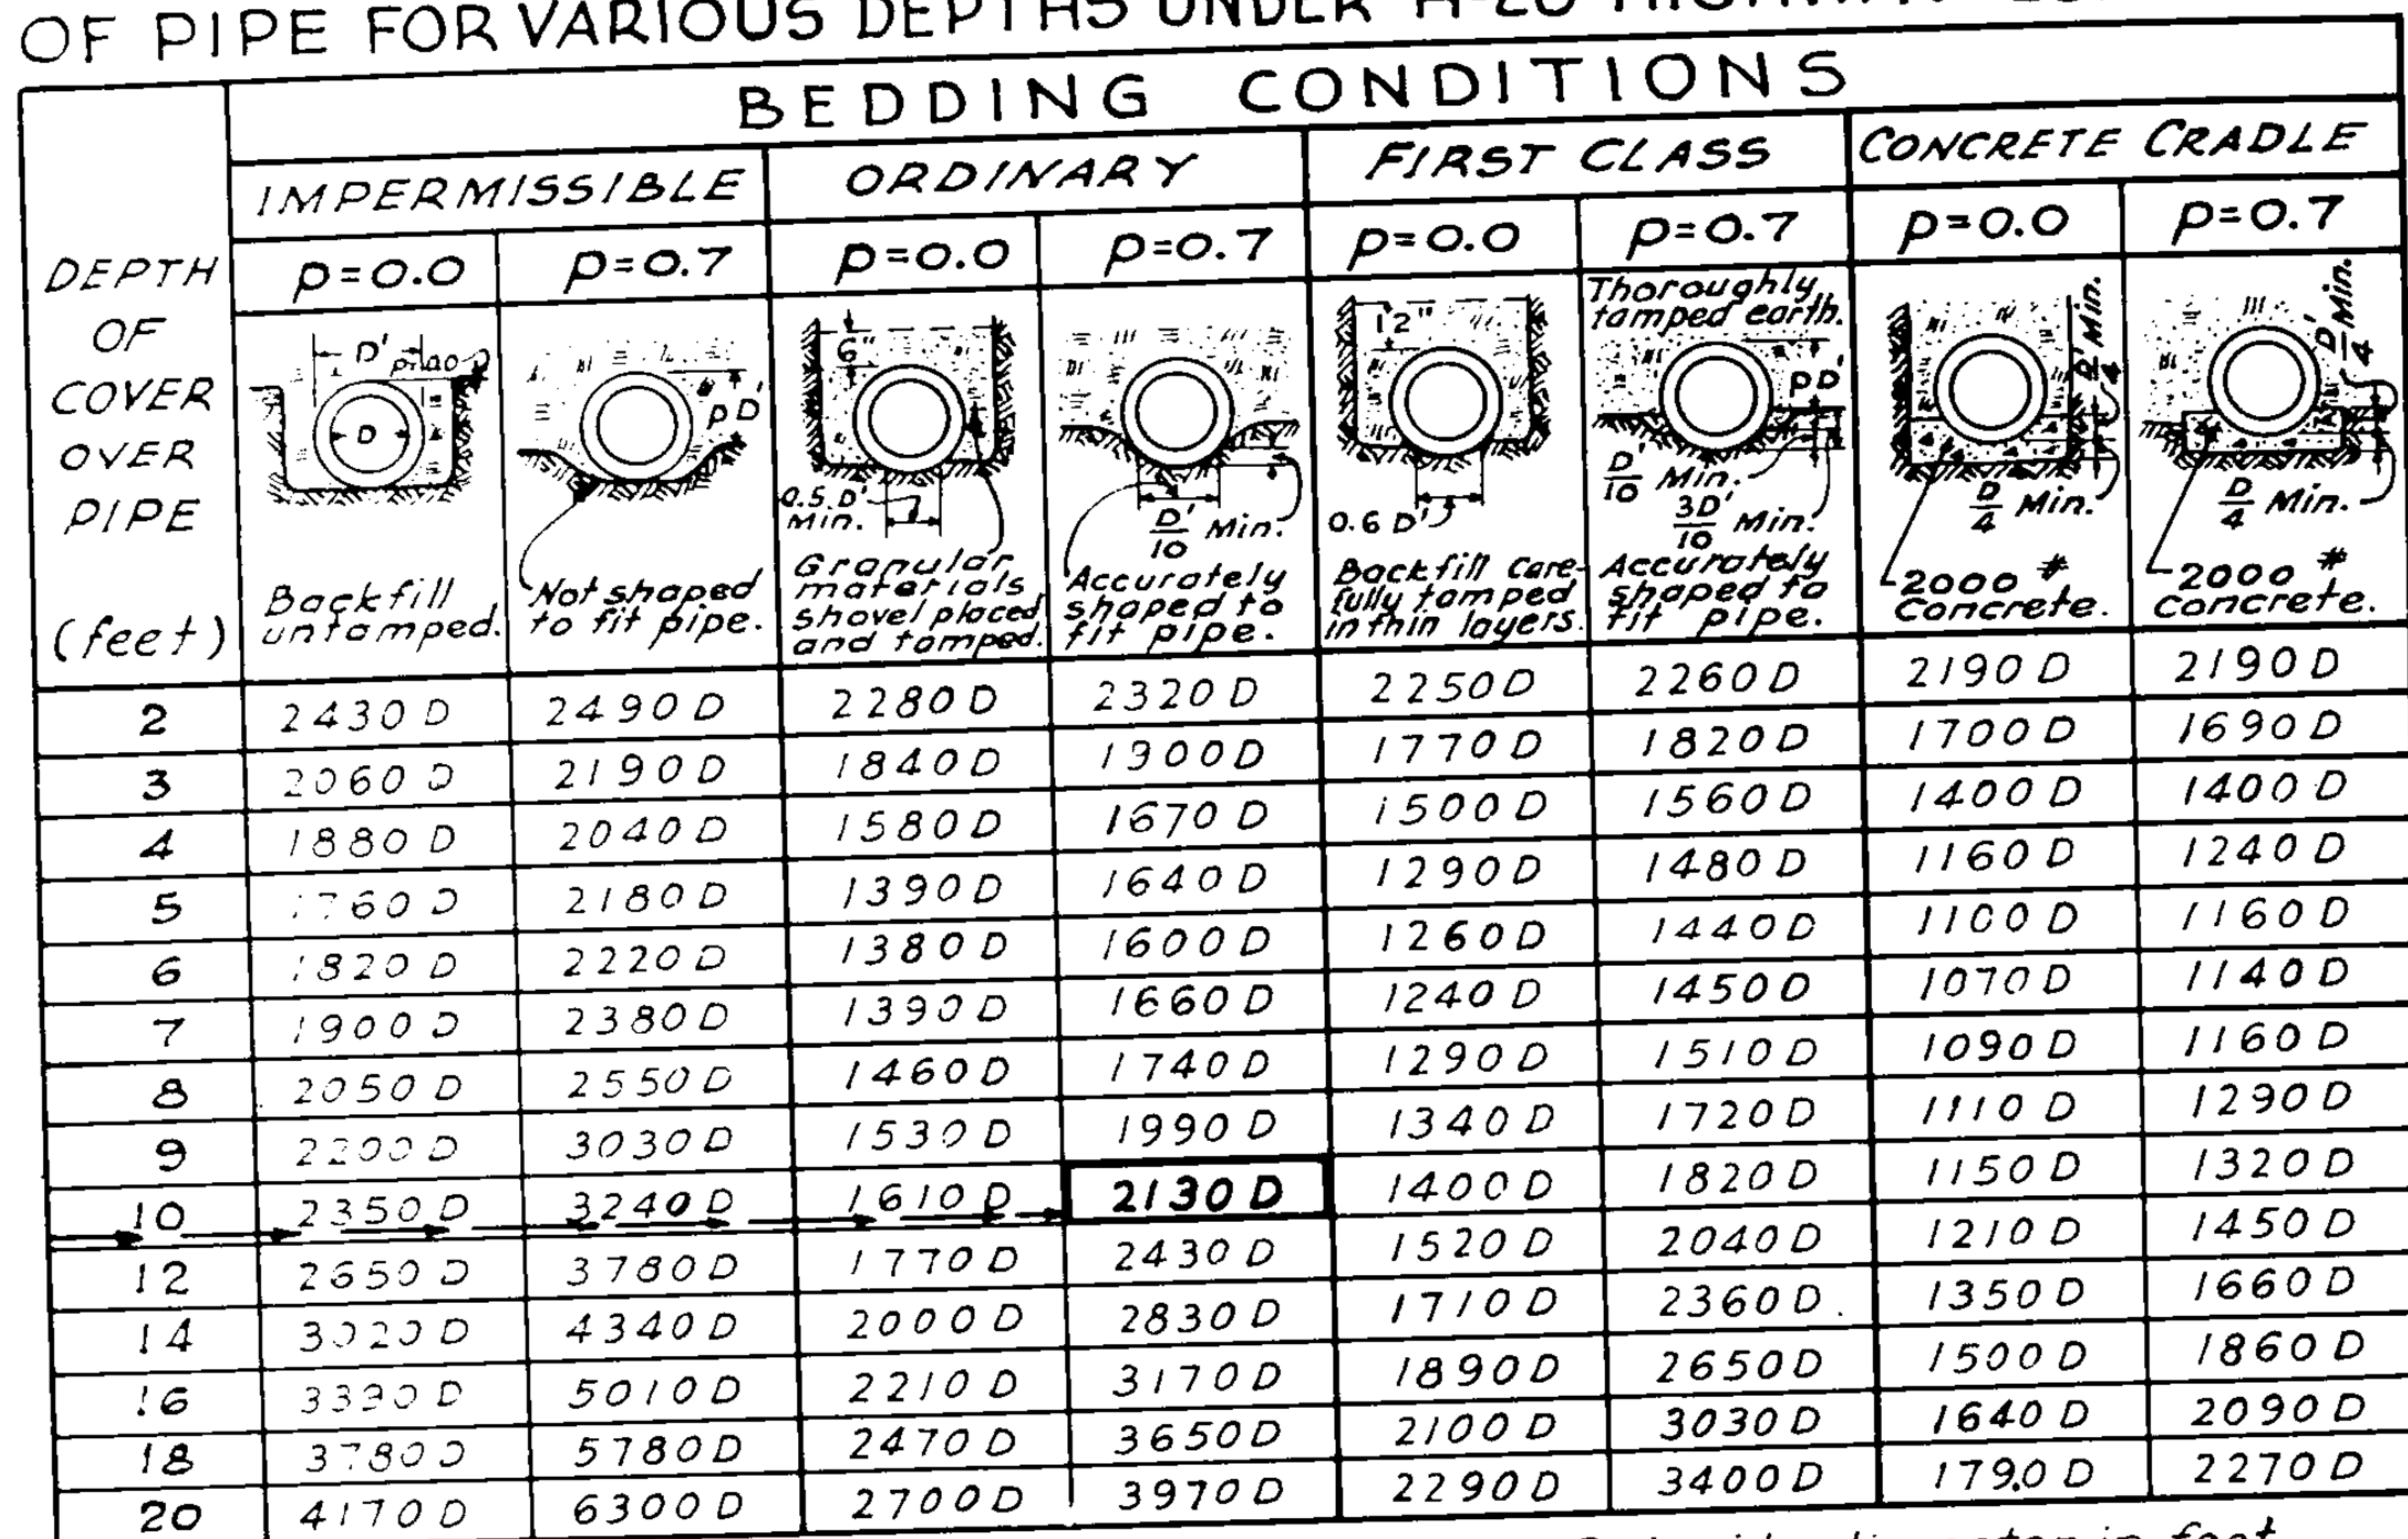 OF PIPE FOR VARIOUS DEPTHS UNDER H-20 HIGHWAY
BEDDING CONDITIONS
IMPERMISSIBLE ORDINARY FIRST CLASS CONCRETE CRADLE
p=0.0 p=0.7 p=0.0 p=0.7 p=0.0 p=0.7 p=0.0 p=0.7
DEPTH
OF
COVER
OVER
PIPE
(feet)
D'
D
Backfill
untamped.
pD'
Not shaped
to fit pipe.
6"
0.5 D'
Min.
Granular
materials
shovel placed
and tamped.
D'/10 Min.
Accurately
shaped to
fit pipe.
12"
0.6 D'
Backfill care-
fully tamped
in thin layers.
Thoroughly
tamped earth.
pD'
D'/10 Min.
3D'/10 Min.
Accurately
shaped to
fit pipe.
D'/4 Min.
D/4 Min.
2000 #
Concrete.
D'/4 Min.
D/4 Min.
2000 #
Concrete.
2 2430 D 2490 D 2280 D 2320 D 2250 D 2260 D 2190 D 2190 D
3 2060 D 2190 D 1840 D 1900 D 1770 D 1820 D 1700 D 1690 D
4 1880 D 2040 D 1580 D 1670 D 1500 D 1560 D 1400 D 1400 D
5 1760 D 2180 D 1390 D 1640 D 1290 D 1480 D 1160 D 1240 D
6 1820 D 2220 D 1380 D 1600 D 1260 D 1440 D 1100 D 1160 D
7 1900 D 2380 D 1390 D 1660 D 1240 D 1450 D 1070 D 1140 D
8 2050 D 2550 D 1460 D 1740 D 1290 D 1510 D 1090 D 1160 D
9 2200 D 3030 D 1530 D 1990 D 1340 D 1720 D 1110 D 1290 D
10 2350 D 3240 D 1610 D 2130 D 1400 D 1820 D 1150 D 1320 D
12 2650 D 3780 D 1770 D 2430 D 1520 D 2040 D 1210 D 1450 D
14 3020 D 4340 D 2000 D 2830 D 1710 D 2360 D. 1350 D 1660 D
16 3390 D 5010 D 2210 D 3170 D 1890 D 2650 D 1500 D 1860 D
18 3780 D 5780 D 2470 D 3650 D 2100 D 3030 D 1640 D 2090 D
20 4170 D 6300 D 2700 D 3970 D 2290 D 3400 D 1790 D 2270 D
in feet